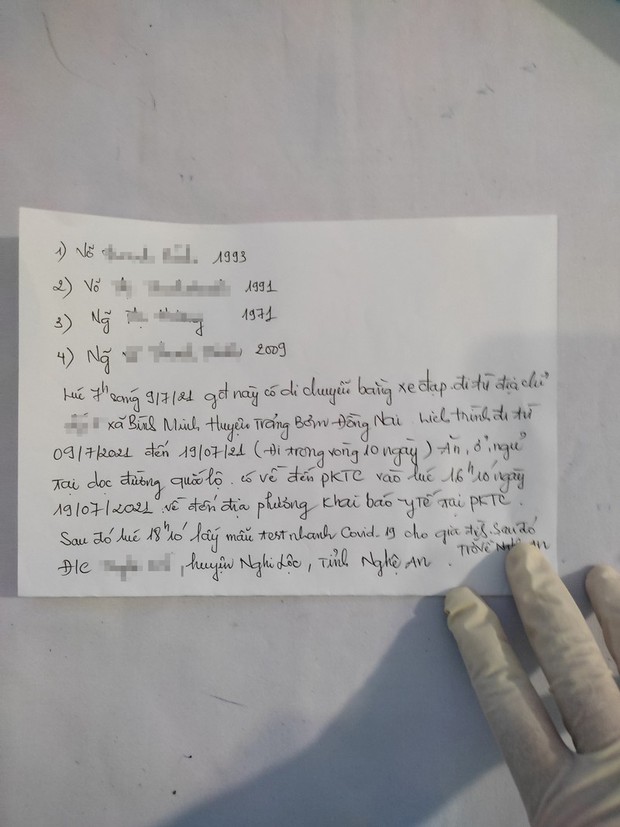 1) Võ 1993
2) Võ 1991
3) Ng~ 1971
4) Ng~ 2009
Lúc 7h sáng 9/7/21 gđ này có di chuyển bằng xe đạp đi từ địa chỉ
xã Bình Minh, Huyện Trảng Bom - Đồng Nai lịch trình đi từ
09/7/2021 đến 19/07/21 (Đi trong vòng 10 ngày) Ăn, ở, ngủ
tại dọc đường quốc lộ. có về đến PKTC vào lúc 16h10' ngày
19/07/2021. về đến địa phương khai báo y tế tại PKTC.
Sau đó lúc 18h10' lấy mẫu test nhanh Covid.19 cho gia đình. Sau đó
trở về Nghệ An
Đ/C , huyện Nghi Lộc, Tỉnh Nghệ An.